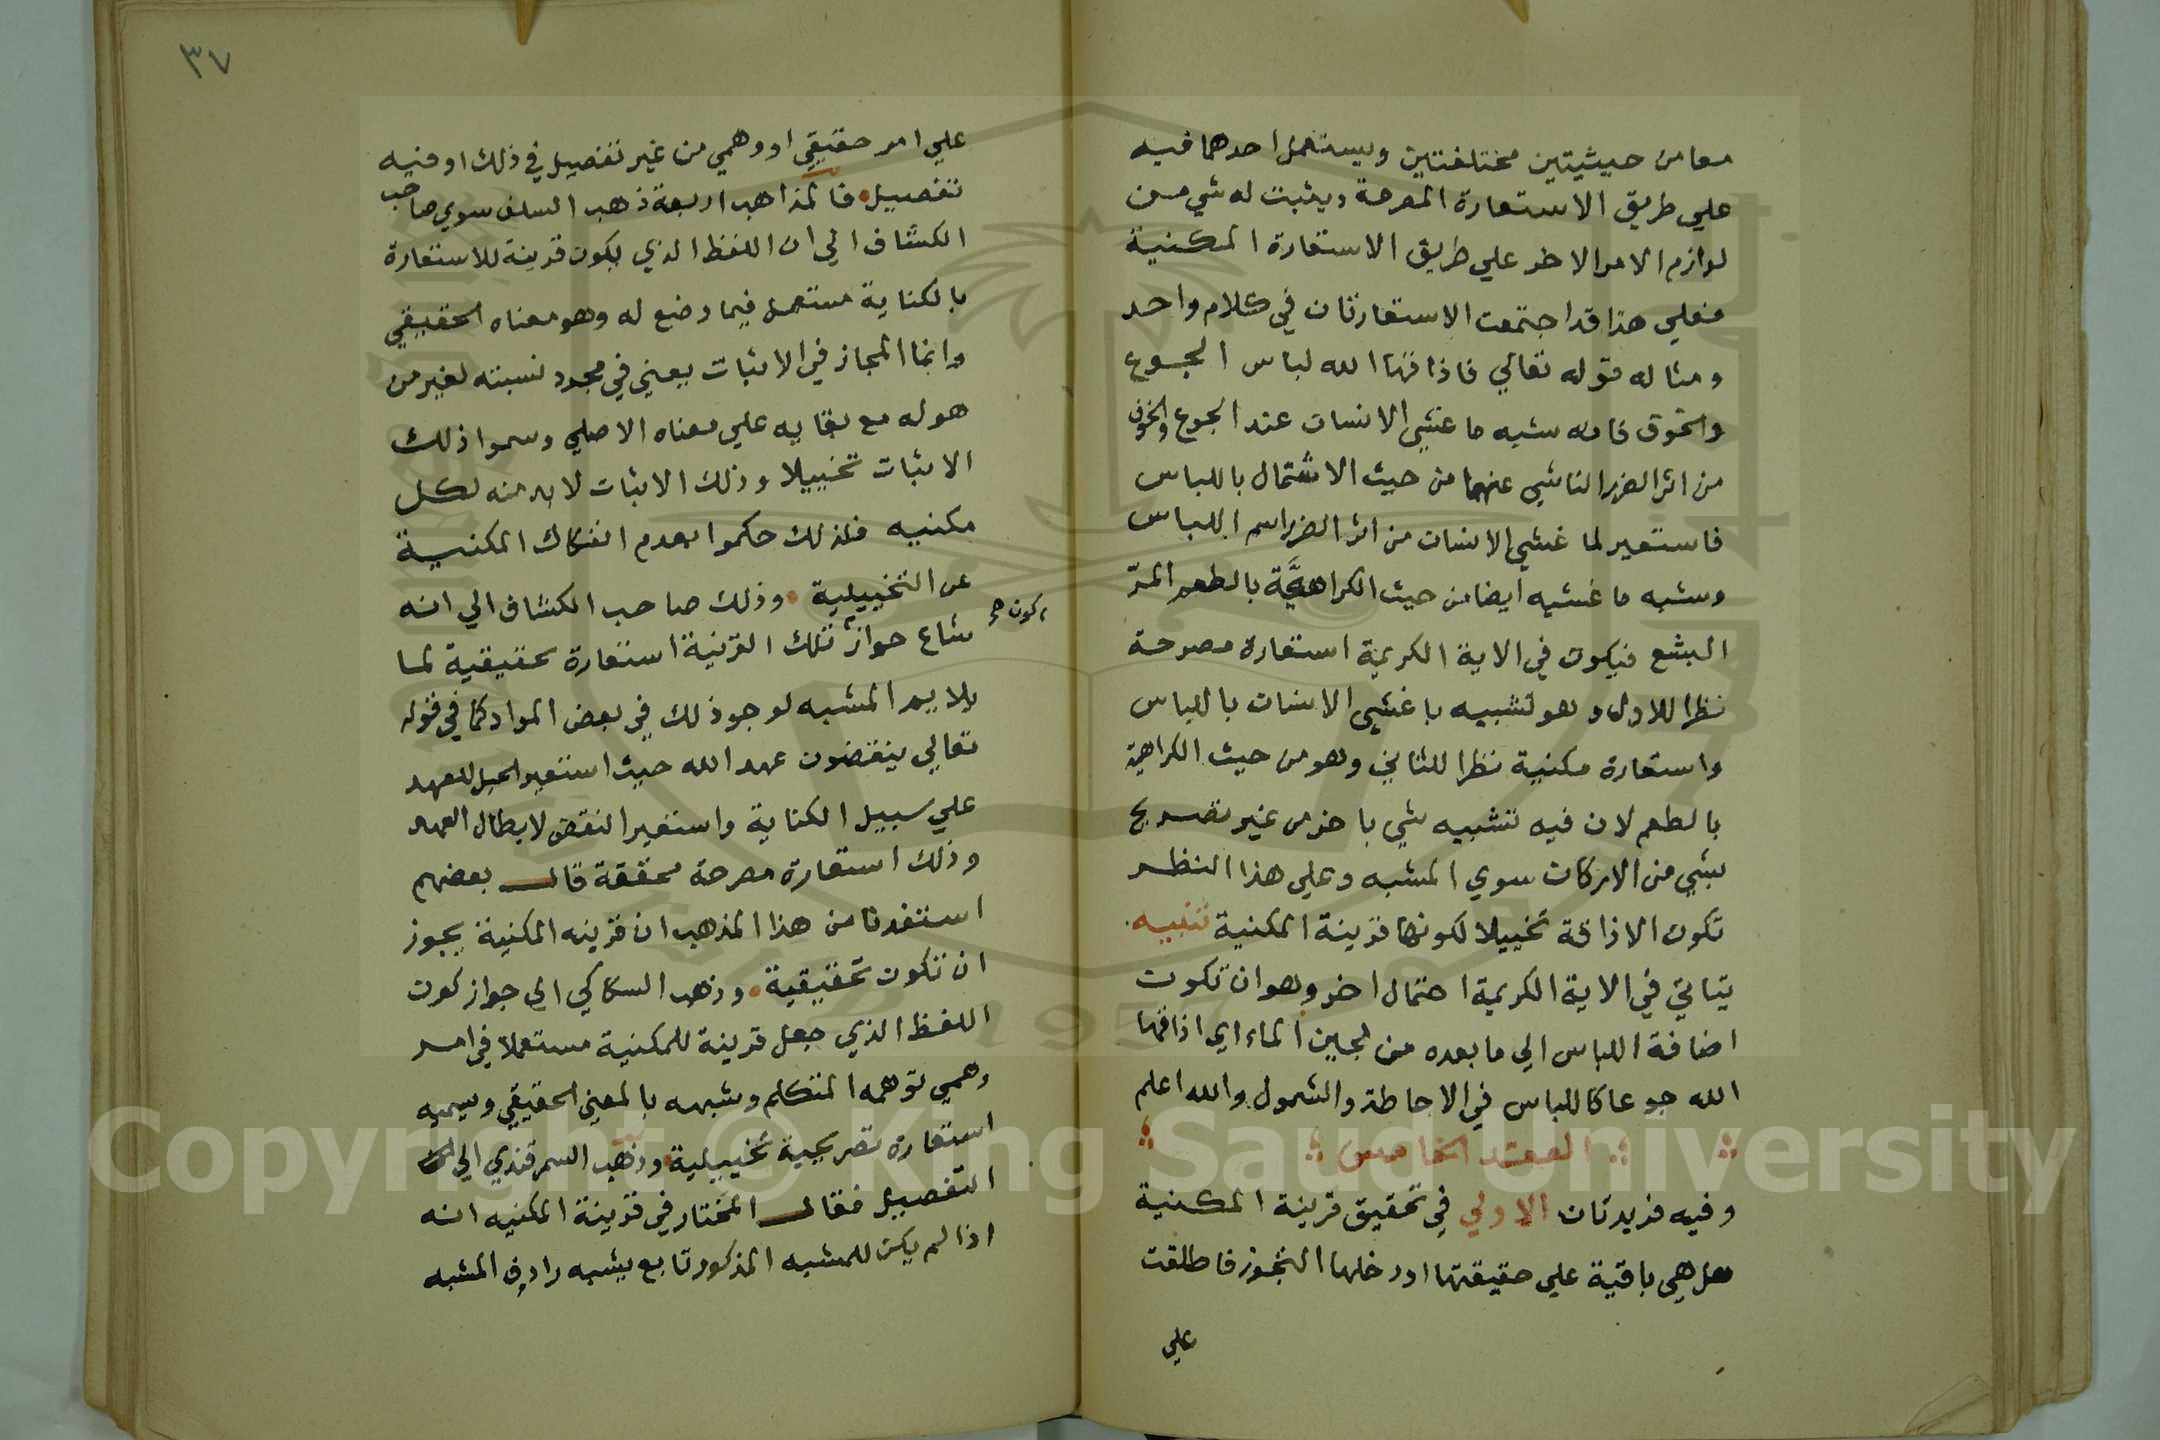 معا من حيثيتين مختلفتين ويستعمل احدهما فيه
علي طريق الاستعارة المصرحة ويثبت له شي من
لوازم الامر الاخر علي طريق الاستعارة المكنية
فعلي هذا قد اجتمعت الاستعارتان في كلام واحد
ومثاله قوله تعالي فاذاقها الله لباس الجوع
والخوف فانه شبه ما غشي الانسان عند الجوع والخوف
من اثر الضرر الناشي عنهما من حيث الاشتمال باللباس
فاستعير لما غشي الانسان من اثر الضرر اسم اللباس
وشبه ما غشيه ايضا من حيث الكراهيَّة بالطعم المرّ
البشع فيكون في الاية الكريمة استعارة مصرحة
نظرا للاول وهو تشبيه ما غشي الانسان باللباس
واستعارة مكنية نظرا للثاني وهو من حيث الكراهية
بالطعم لان فيه تشبيه شي باخر من غير تصريح
بشي من الاركان سوي المشبه وعلي هذا النظر
تكون الاذاقة تخييلا لكونها قرينة المكنية تنبيه
يتاتي في الاية الكريمة احتمال اخر وهو ان تكون
اضافة اللباس الي ما بعده من لجين الماء اي اذاقها
الله جوعا كاللباس في الاحاطة والشمول والله اعلم
العقد الخامس
وفيه فريدتان الاولي في تحقيق قرينة المكنية
هل هي باقية علي حقيقتها او دخلها التجوز فاطلقت
علي
٣٧
علي امر حقيقي او وهمي من غير تفصيل في ذلك او فيه
تفصيل فالمذاهب اربعة ذهب السلف سوي صاحب
الكشاف الي ان اللفظ الذي يكون قرينة للاستعارة
بالكناية مستعمل فيما وضع له وهو معناه الحقيقي
وانما المجاز في الاثبات يعني في مجرد نسبته لغير من
هو له مع بقايه علي معناه الاصلي وسموا ذلك
الاثبات تخييلا وذلك الاثبات لا بد منه لكل
مكنيه فلذلك حكموا بعدم انفكاك المكنية
عن التخييلية وذلك صاحب الكشاف الي انه
شاع جواز تلك القرنية استعارة حقيقية لما
كون صح
يلايم المشبه لوجو ذلك في بعض المواد كما في قوله
تعالي ينقضون عهد الله حيث استعير الحبل للعهد
علي سبيل الكناية واستعير النقض لابطال العهد
وذلك استعارة مصرحة محققة قال بعضهم
استفدنا من هذا المذهب ان قرينه المكنية يجوز
ان تكون تحقيقية وذهب السكاكي الي جواز كون
اللفظ الذي جعل قرينة للمكنية مستعملا في امر
وهمي توهمه المتكلم وشبهه بالمعني الحقيقي ويسميه
استعارة تصريحية تخييلية وذهب السمرقندي الي
التفصيل فقال المختار في قرينة المكنيه انه
اذا لم يكن للمشبه المذكور تابع يشبه رادف المشبه
Copyright © King Saud University